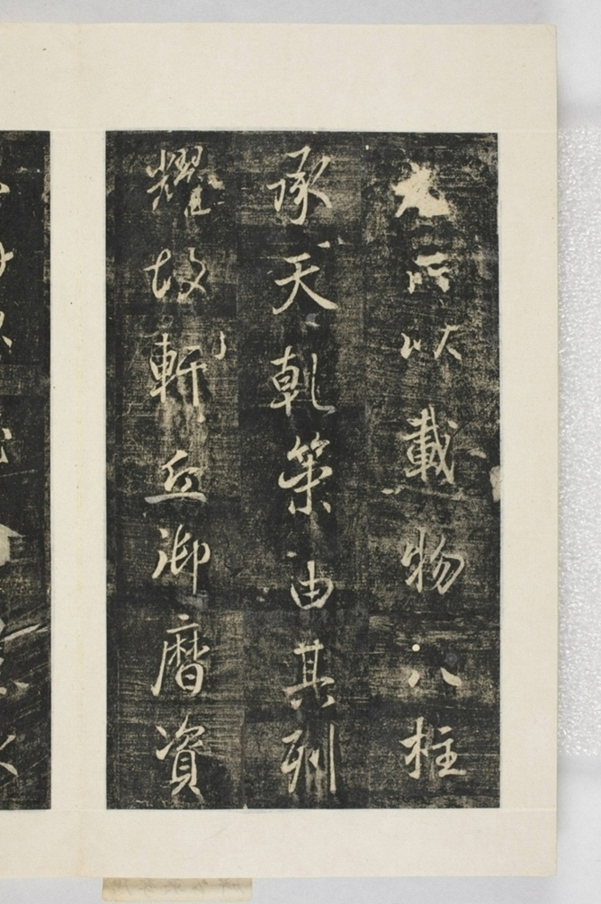 所以載物八柱
承天乾策由其列
耀故軒丘御曆資